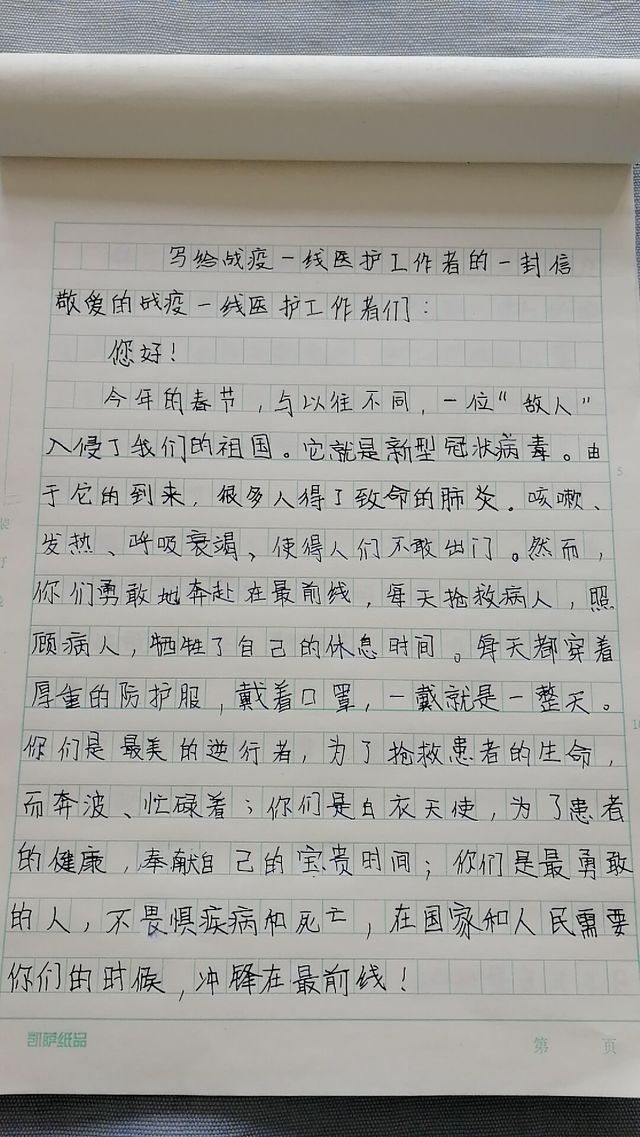 写给战疫一线医护工作者的一封信
敬爱的战疫一线医护工作者们：
您好！
今年的春节，与以往不同，一位“敌人”
入侵了我们的祖国。它就是新型冠状病毒。由
于它的到来，很多人得了致命的肺炎。咳嗽、
发热、呼吸衰竭、使得人们不敢出门。然而，
你们勇敢地奔赴在最前线，每天抢救病人，照
顾病人，牺牲了自己的休息时间。每天都穿着
厚重的防护服，戴着口罩，一戴就是一整天。
你们是最美的逆行者，为了抢救患者的生命，
而奔波、忙碌着；你们是白衣天使，为了患者
的健康，奉献自己的宝贵时间；你们是最勇敢
的人，不畏惧疾病和死亡，在国家和人民需要
你们的时候，冲锋在最前线！
凯萨纸品
第 页
5
10
装
订